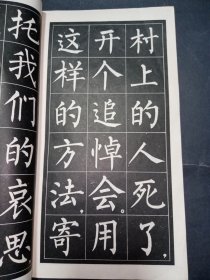 村上的人死了，
开个追悼会。用
这样的方法，寄
托我们的哀思